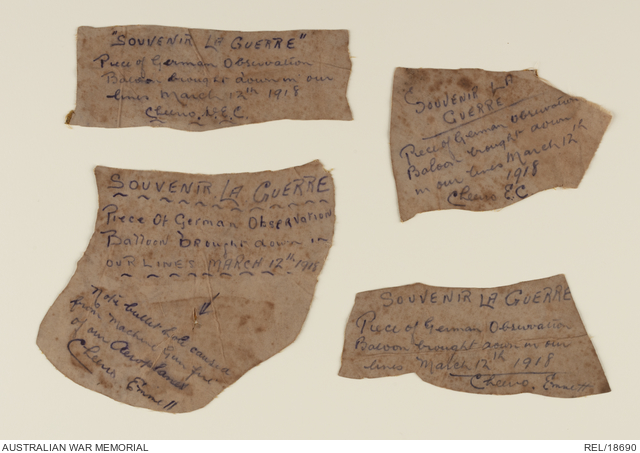 "SOUVENIR LA GUERRE"
Piece of German Observation
Baloon brought down in our
lines March 12th 1918
Cheero. E.C.
"SOUVENIR LA
GUERRE
Piece of German Observation
Baloon brought down
in our lines March 12th
1918
Cheero E.C.
SOUVENIR LA GUERRE
Piece Of German Observation
Balloon brought down in
our lines March 12th 1918
Note bullet hole caused
from Machine Gun fire
of our Aeroplanes
Cheero Emmett
SOUVENIR LA GUERRE
Piece of German Observation
Baloon brought down in our
lines March 12th 1918
Cheero. Emmett
AUSTRALIAN WAR MEMORIAL
REL/18690